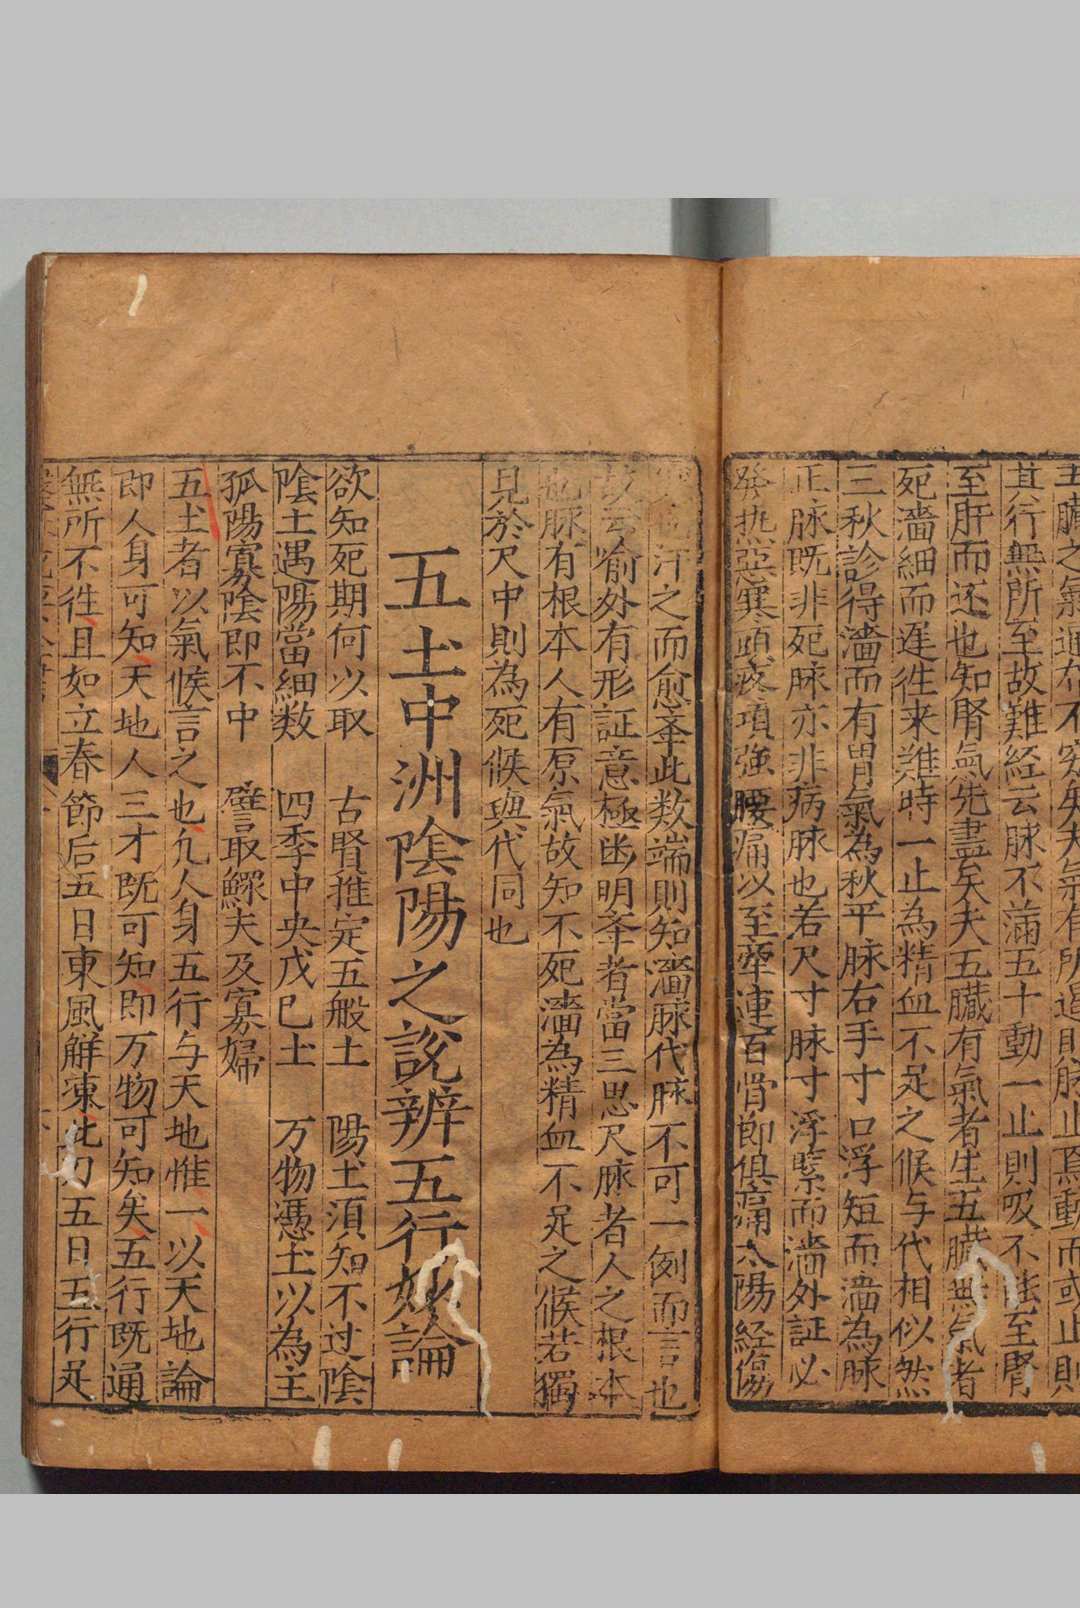 五臟之氣通布不窮矣夫氣有所過則脉止焉動而或止則
其行無所至故難経云脉不滿五十動一止則吸不能至腎
至肝而还也知腎氣先盡矣夫五臟有氣者生五臟無氣者
死濇細而遲徃来難時一止為精血不足之候与代相似然
三秋診得濇而有胃氣為秋平脉右手寸口浮短而濇為脉
正脉既非死脉亦非病脉也若尺寸脉寸浮緊而濇外証必
發热惡寒頭疼項強腰痛以至牽連百骨節俱痛太陽経傷
汗之而愈夆此数端則知濇脉代脉不可一例而言也
故云喻外有形証意極幽明夆者當三思尺脉者人之根本
也脉有根本人有原氣故知不死濇為精血不足之候若獨
見於尺中則為死候與代同也
五土中洲陰陽之說辨五行妙論
欲知死期何以取 古賢推定五般土 陽土須知不过陰
陰土遇陽當細数 四季中央戊巳土 万物憑土以為主
孤陽寡陰即不中 譬取鰥夫及寡婦
五土者以氣候言之也凢人身五行与天地惟一以天地論
即人身可知天地人三才既可知即万物可知矣五行既通
無所不徃且如立春節后五日東風解凍此刃五日五行足